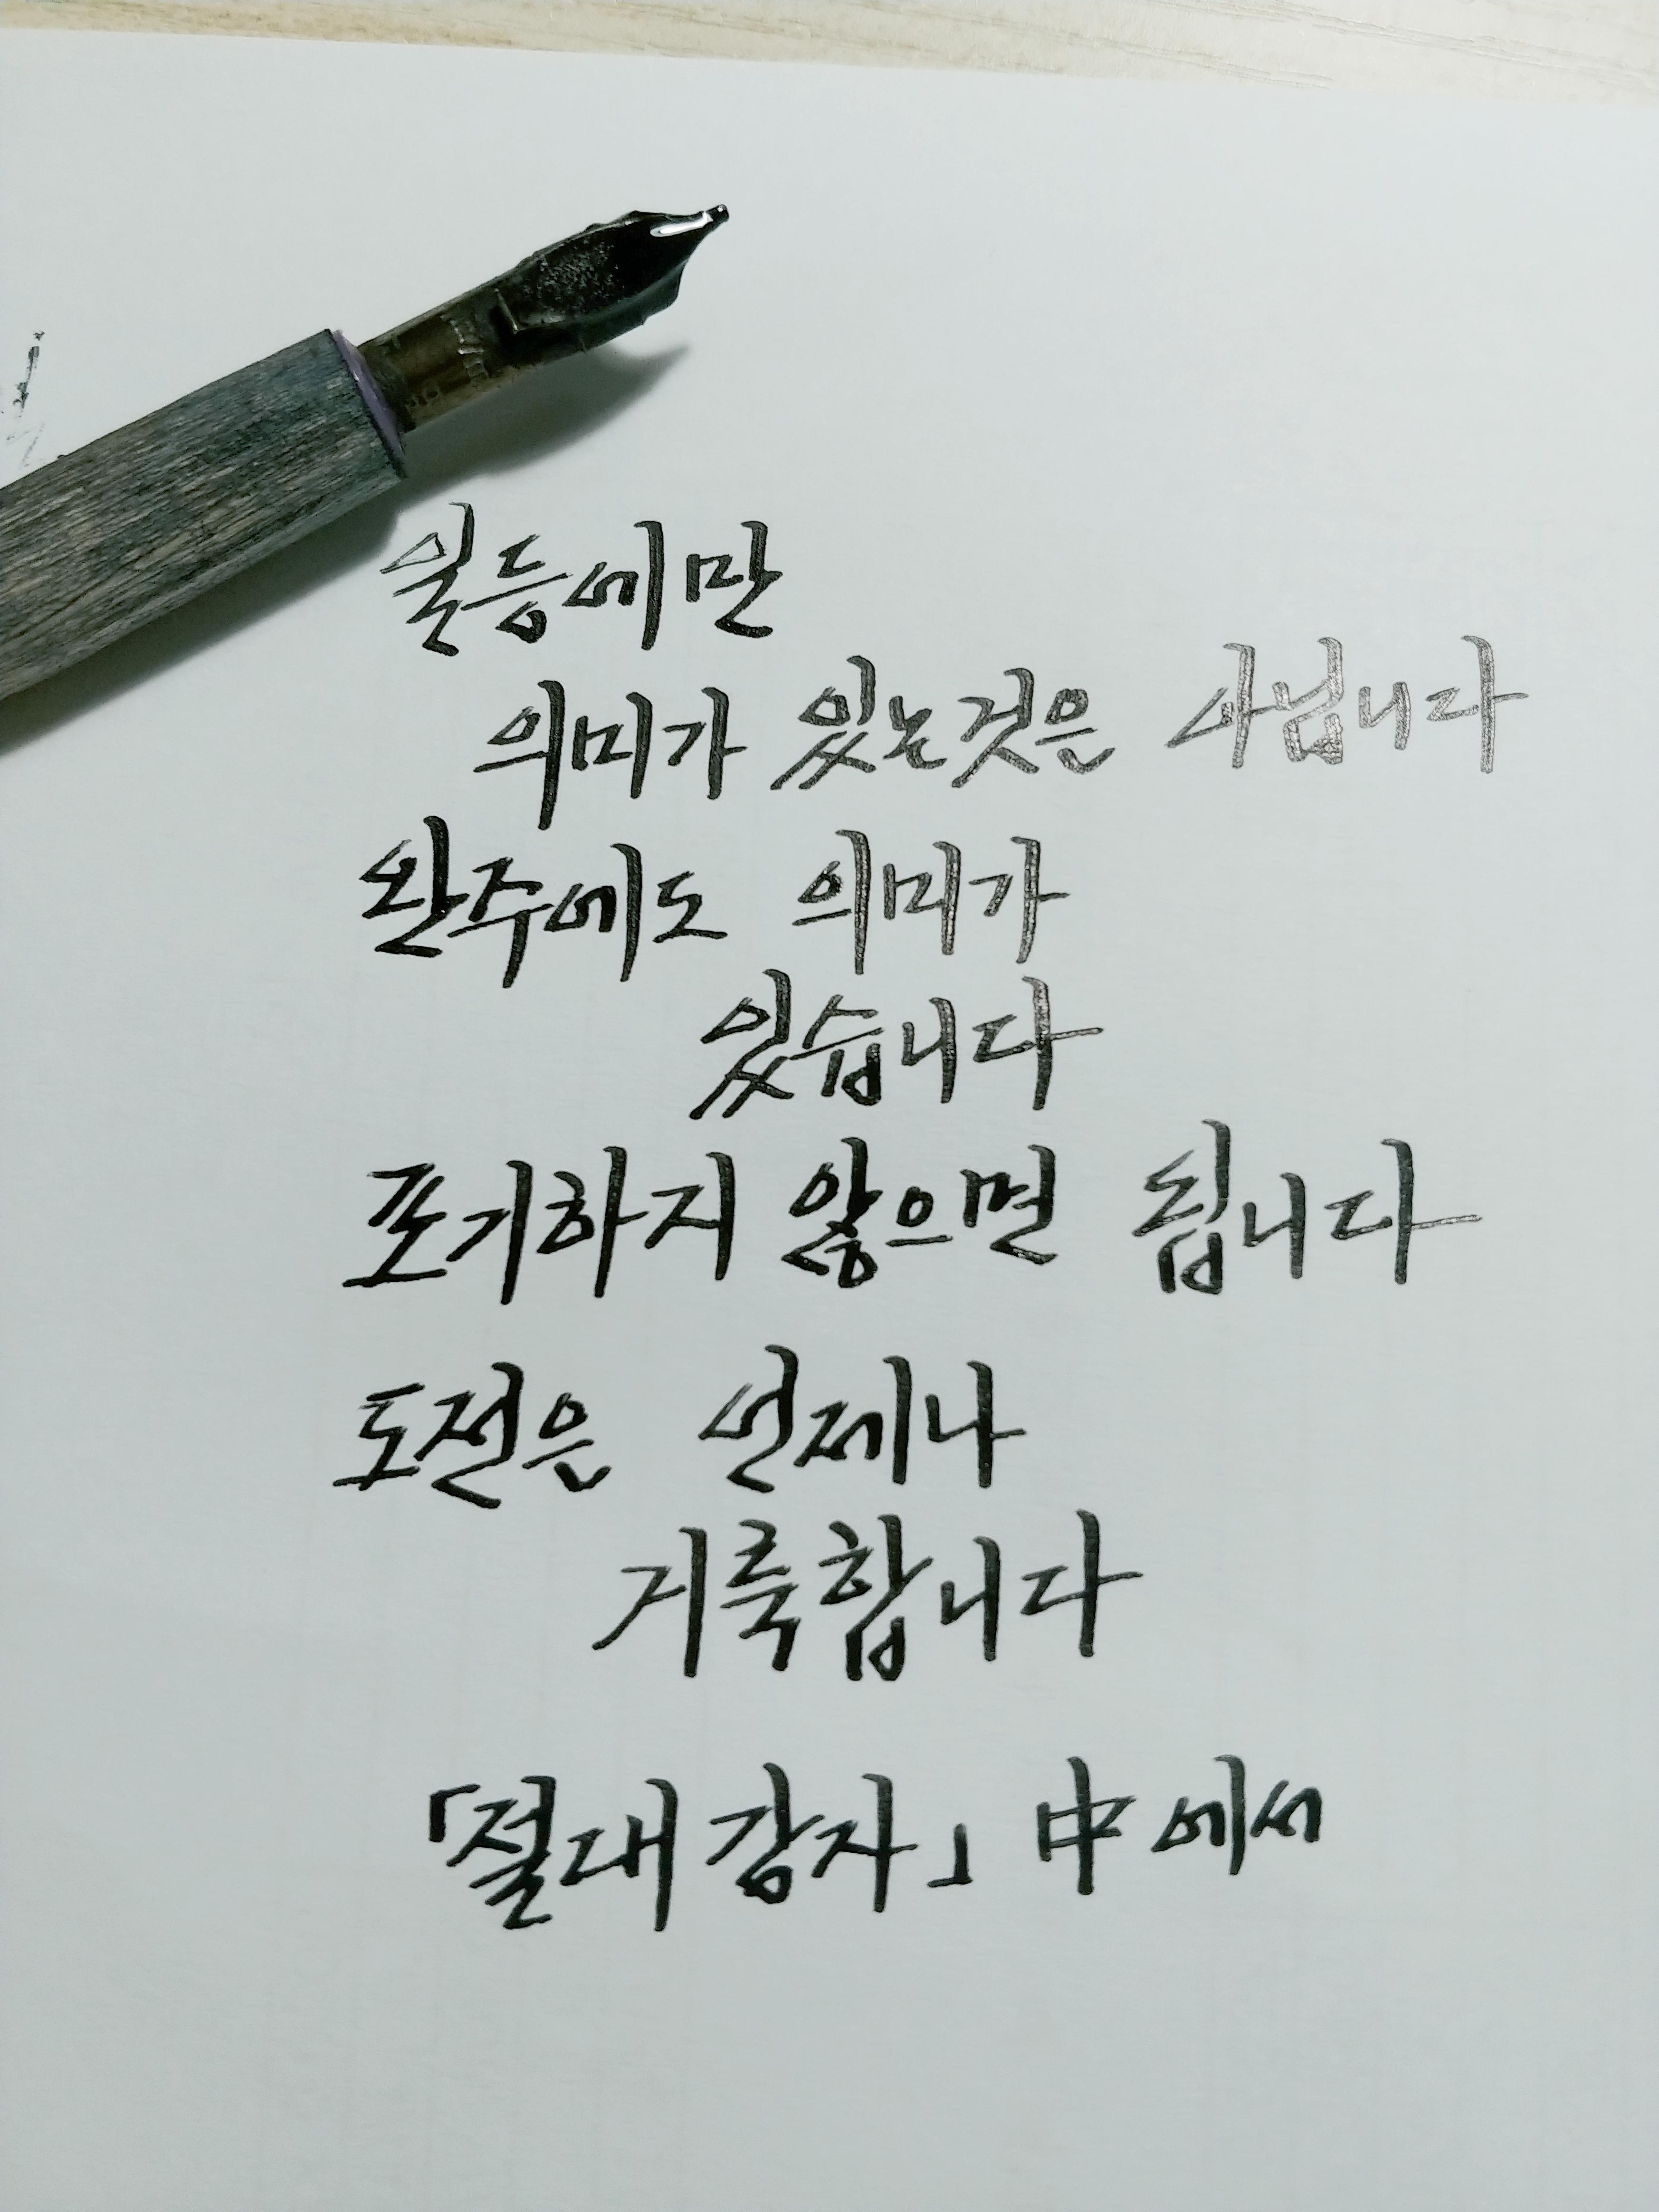 일등에만
의미가 있는것은 아닙니다
완주에도 의미가
있습니다
포기하지 않으면 됩니다
도전은 언제나
거룩합니다
「절대 감자」 中에서